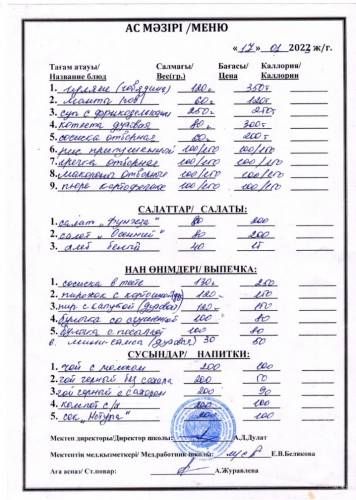 АС МӘЗІРІ /МЕНЮ
« 17 » 01 2022 ж/г.
Тағам атауы/ Салмағы/ Бағасы/ Каллория/
Название блюд Вес(гр.) Цена Каллории
1. (говядина) 120г 350т
2. манты 60г 120т
3. суп с фрикадельками 250г 250т
4. котлета куровая 80г 300т
5. сосиска отварная 50 200т
6. рис припущенный 100/150 100/150
7. гречка отварная 100/150 100/150
8. макароны отварные 100/150 100/150
9. пюре картофельное 100/150 100/150
САЛАТТАР/ САЛАТЫ:
1. салат „Фунчоза“ 80 200
2. салат „Осенний“ 80 200
3. хлеб белый 40 15
НАН ӨНІМДЕРІ/ ВЫПЕЧКА:
1. сосиска в тесте 130г 250
2. пирожок с картошкой 120 150
3. пир с капустой 120 150
4. булочка со сгущенкой 100 80
5. булочка с посыпкой 100 80
6. мини-самса 30 50
СУСЫНДАР/ НАПИТКИ:
1. чай с молоком 200 100
2. чай черный без сахара 200 50
3. чай черный с сахаром 200 90
4. компот с/ф 200 100
5. сок 200 100
Мектеп директоры/Директор школы: А.Л.Дулат
Мектептің мед.қызметкері/ Мед.работник школы: Е.В.Белякова
Аға аспаз/ Ст.повар: А.Журавлева